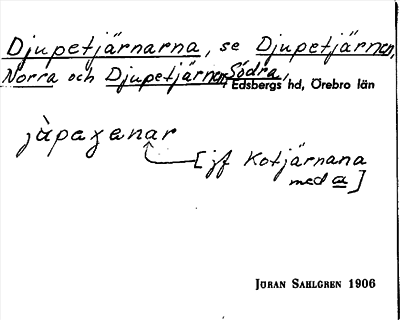 Djupetjärnarna, se Djupetjärnen,
Norra och Djupetjärnen, Södra,
Edsbergs hd, Örebro län
jàpaʒenar
[jf Kotjärnana
med a]
JÖRAN SAHLGREN 1906